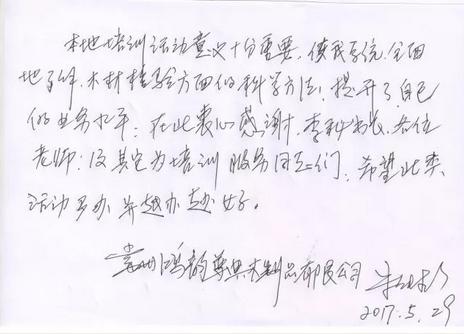 本地培训活动意义十分重要,使我系统、全面
地了解木材检验方面的科学方法,提升了自己
的业务水平,在此衷心感谢李科书长、各位
老师,及其它为培训服务同志们,希望此类
活动多办并越办越好。
鸿韵尊典木制品有限公司
2017.5.29